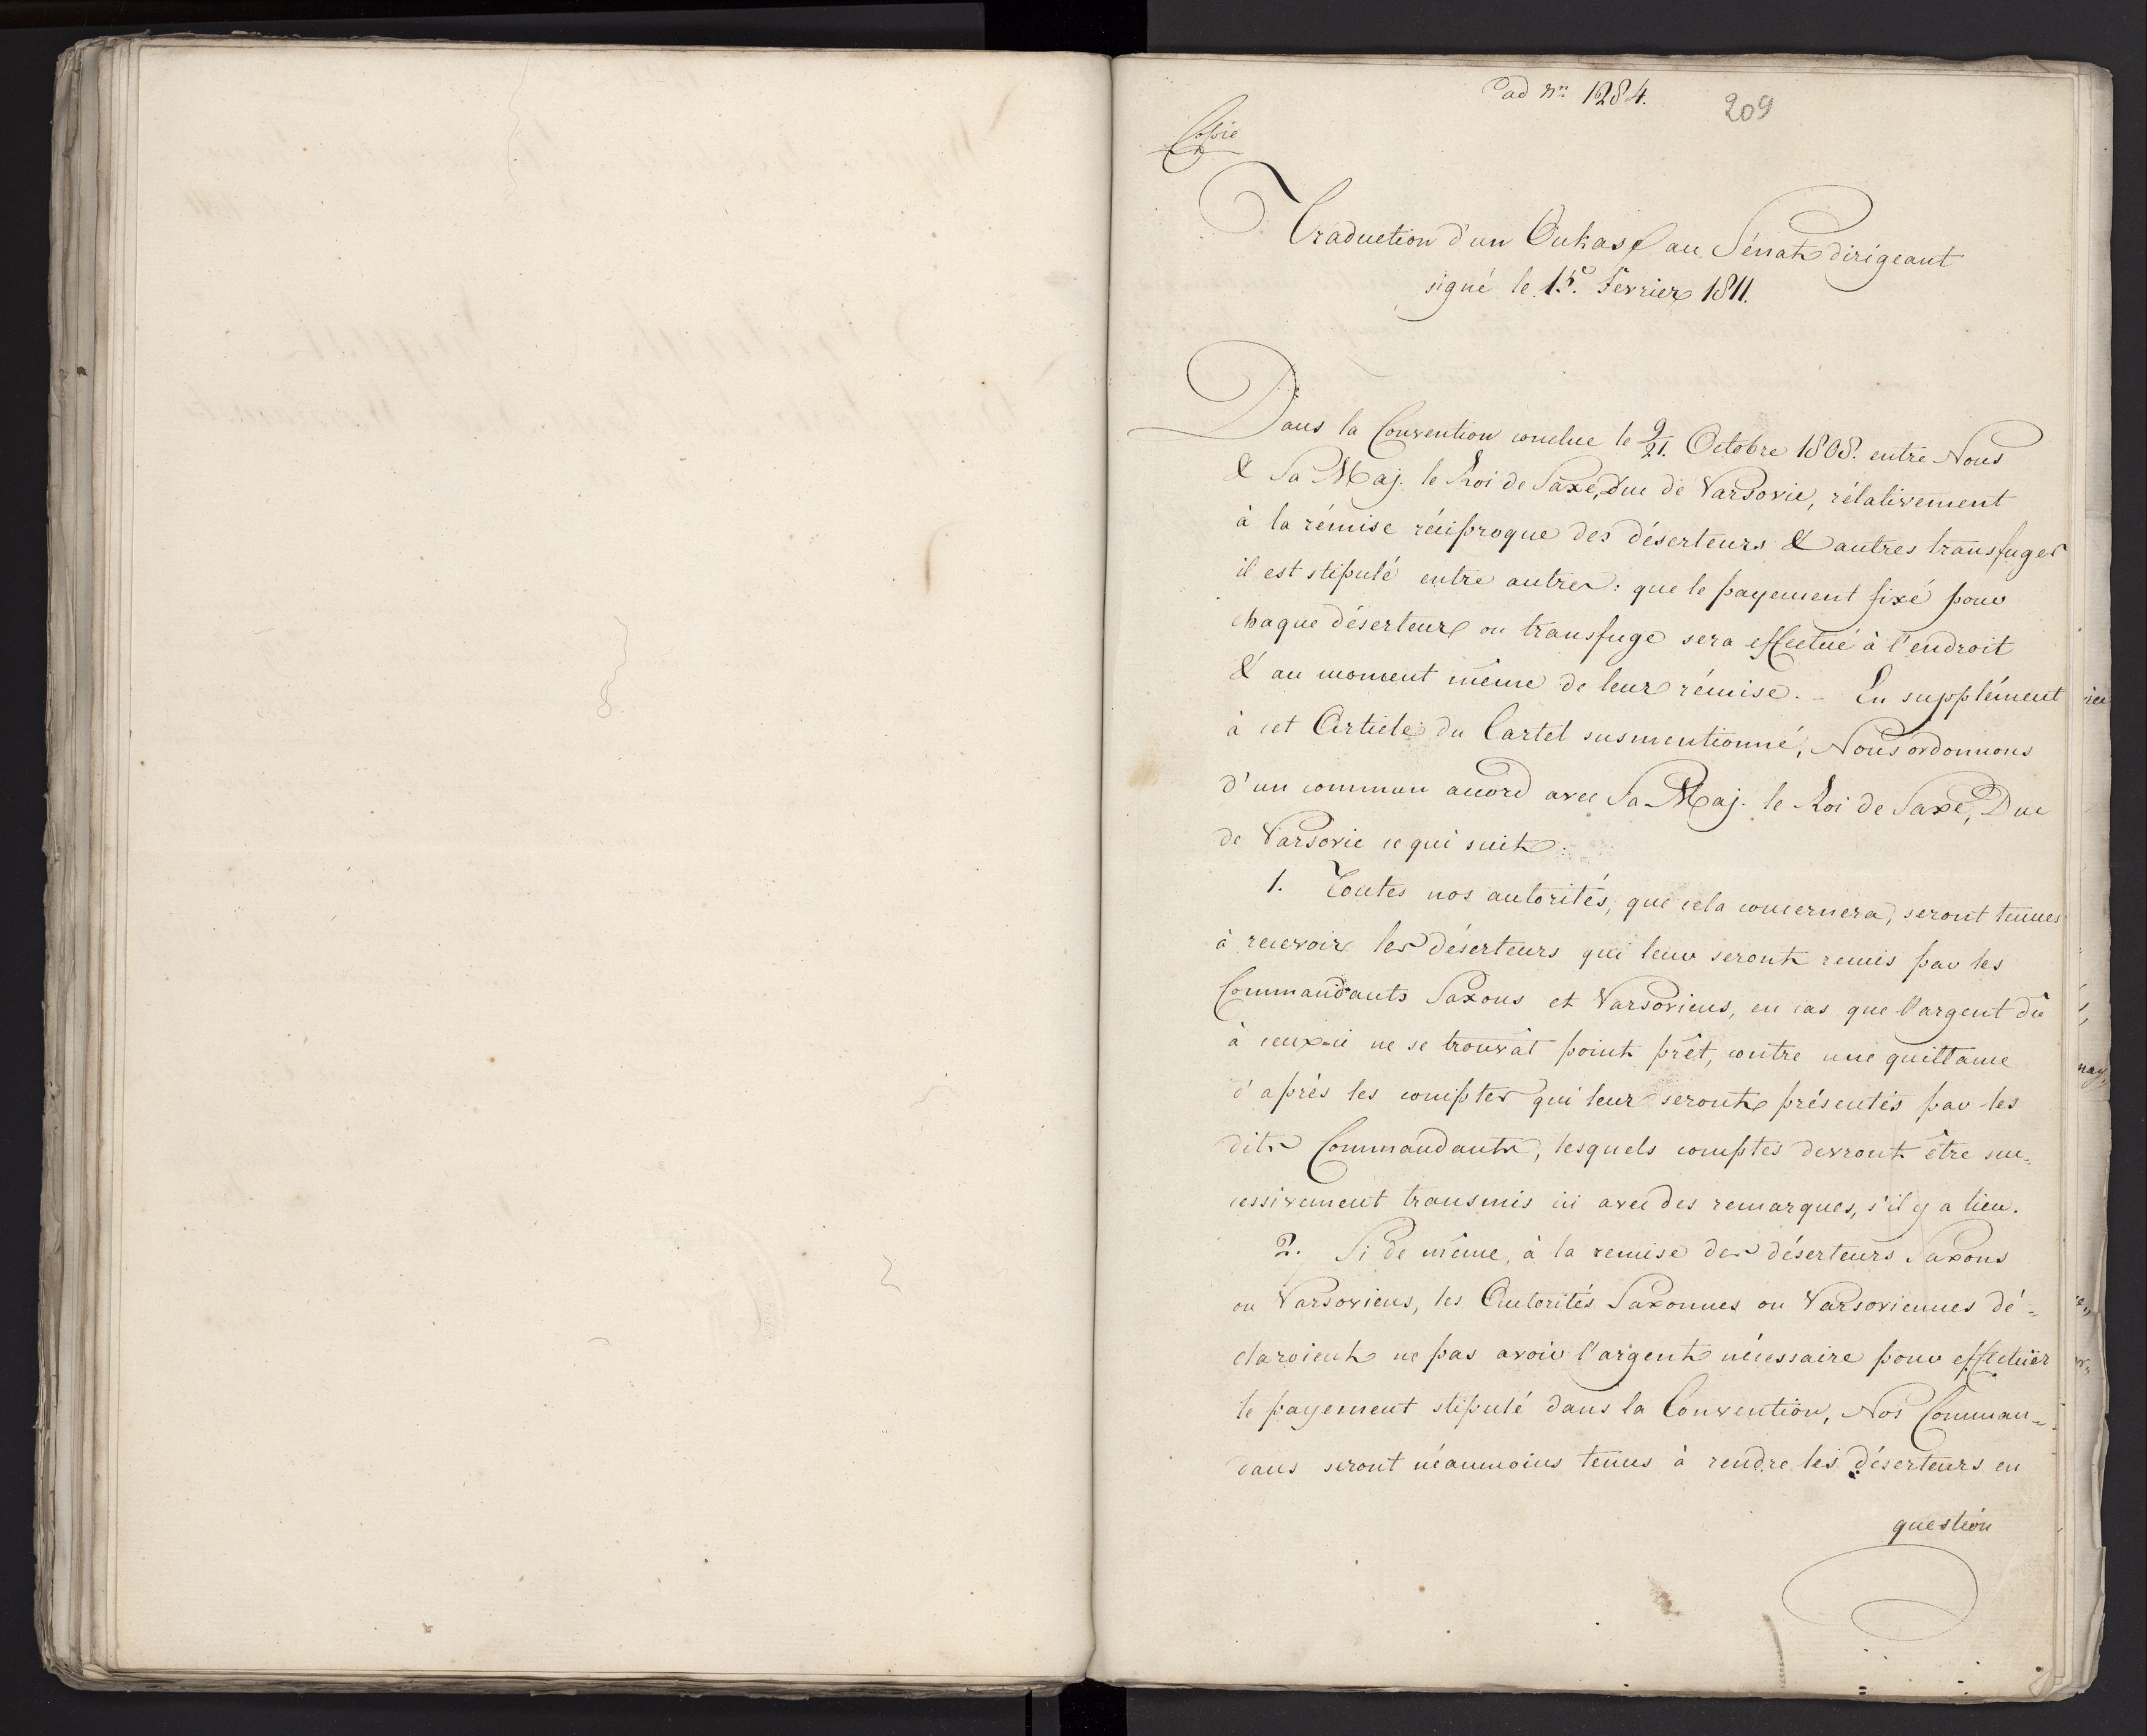 ad Nrn 1284.
209
Copie
Traduction d'un Oukase au Sénat dirigeant
signé le 15. Fevrier 1811.
Dans la Convention conclue le 9/21. Octobre 1808. entre Nous
& Sa Maj. le Roi de Saxe, Duc de Varsovie, rélativement
à la rémise réciproque des déserteurs & autres transfuges
il est stipulé entre autres: que le payement fixé pour
chaque déserteur ou transfuge sera effectué à l'endroit
& au moment même de leur rémise. - En supplément
à cet Article du Cartel susmentionné, Nous ordonnons
d'un commun accord avec Sa Maj. le Roi de Saxe, Duc
de Varsovie ce qui suit:
1. Toutes nos autorités, que cela concernera, seront tenues
à recevoir les déserteurs qui leur seront remis par les
Commandants Saxons et Varsoviens, en cas que l'argent dû
à ceux-ci ne se trouvât point prêt, contre une quittance
d'après les comptes qui leur seront présentés par les
dits Commandants, lesquels comptes devront être suc=
cessivement transmis ici avec des remarques, s'il y a lieu.
2. Si de même, à la remise des déserteurs Saxons
ou Varsoviens, les Autorités Saxonnes ou Varsoviennes dé=
claroient ne pas avoir l'argent nécessaire pour effectuer
le payement stipulé dans la Convention, Nos Comman=
dans seront néanmoins tenus à rendre les déserteurs en
question